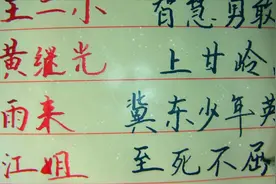 王二小 智慧勇敢
黄继光 上甘岭
雨来 冀东少年英
江姐 至死不屈